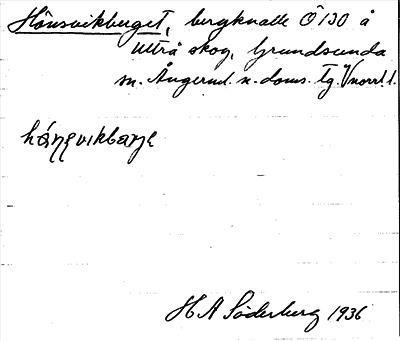 Hönsvikberget, bergknalle Ö130 å
Ultrå skog, Grundsunda
sn. Ångerml. n. doms. tg. V norrl. l.
H A Söderberg 1936